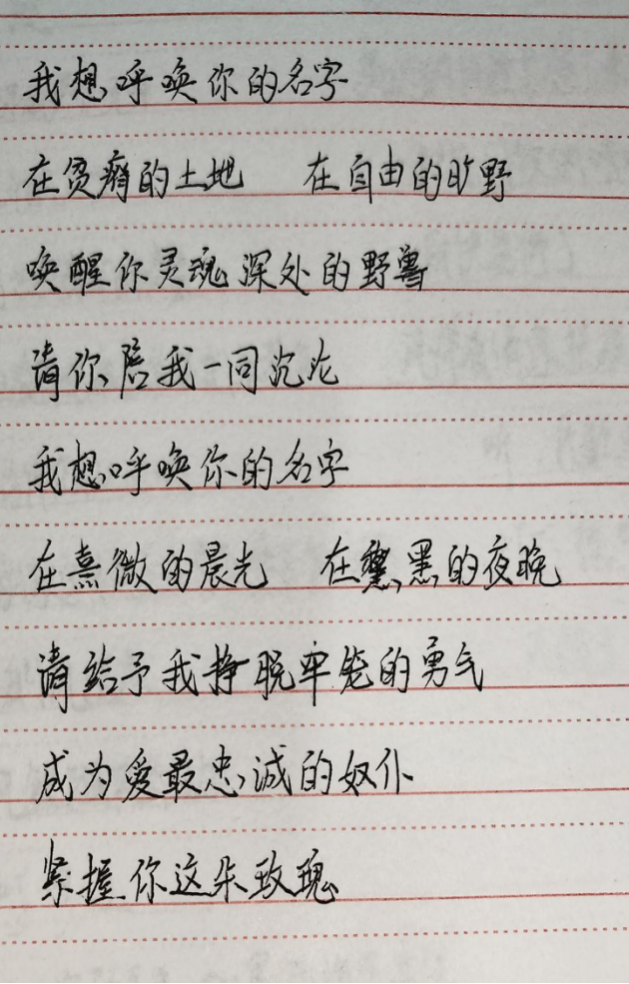 我想呼唤你的名字
在贫瘠的土地 在自由的旷野
唤醒你灵魂深处的野兽
请你陪我一同沉沦
我想呼唤你的名字
在熹微的晨光 在黧黑的夜晚
请给予我挣脱牢笼的勇气
成为爱最忠诚的奴仆
紧握你这朵玫瑰